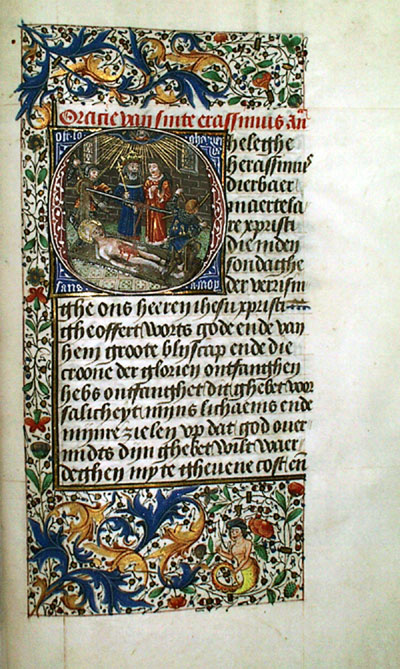 Oracie van sinte erassimus An
heleghe
herassimus
dierbaer
maertela
re xpristi
die in den
sondaghe
der verrisin
ghe ons heeren ihesu xpristi
ghe offert worts gode ende van
hem groote blijscap ende die
croone der glorien ontfanghen
hebs ontfanghet dit ghebet voor
salicheyt mijns lichaems ende
mijnre zielen vp dat god ouer
midts dijn ghebet wilt waer
deghen my te gheuene cost en